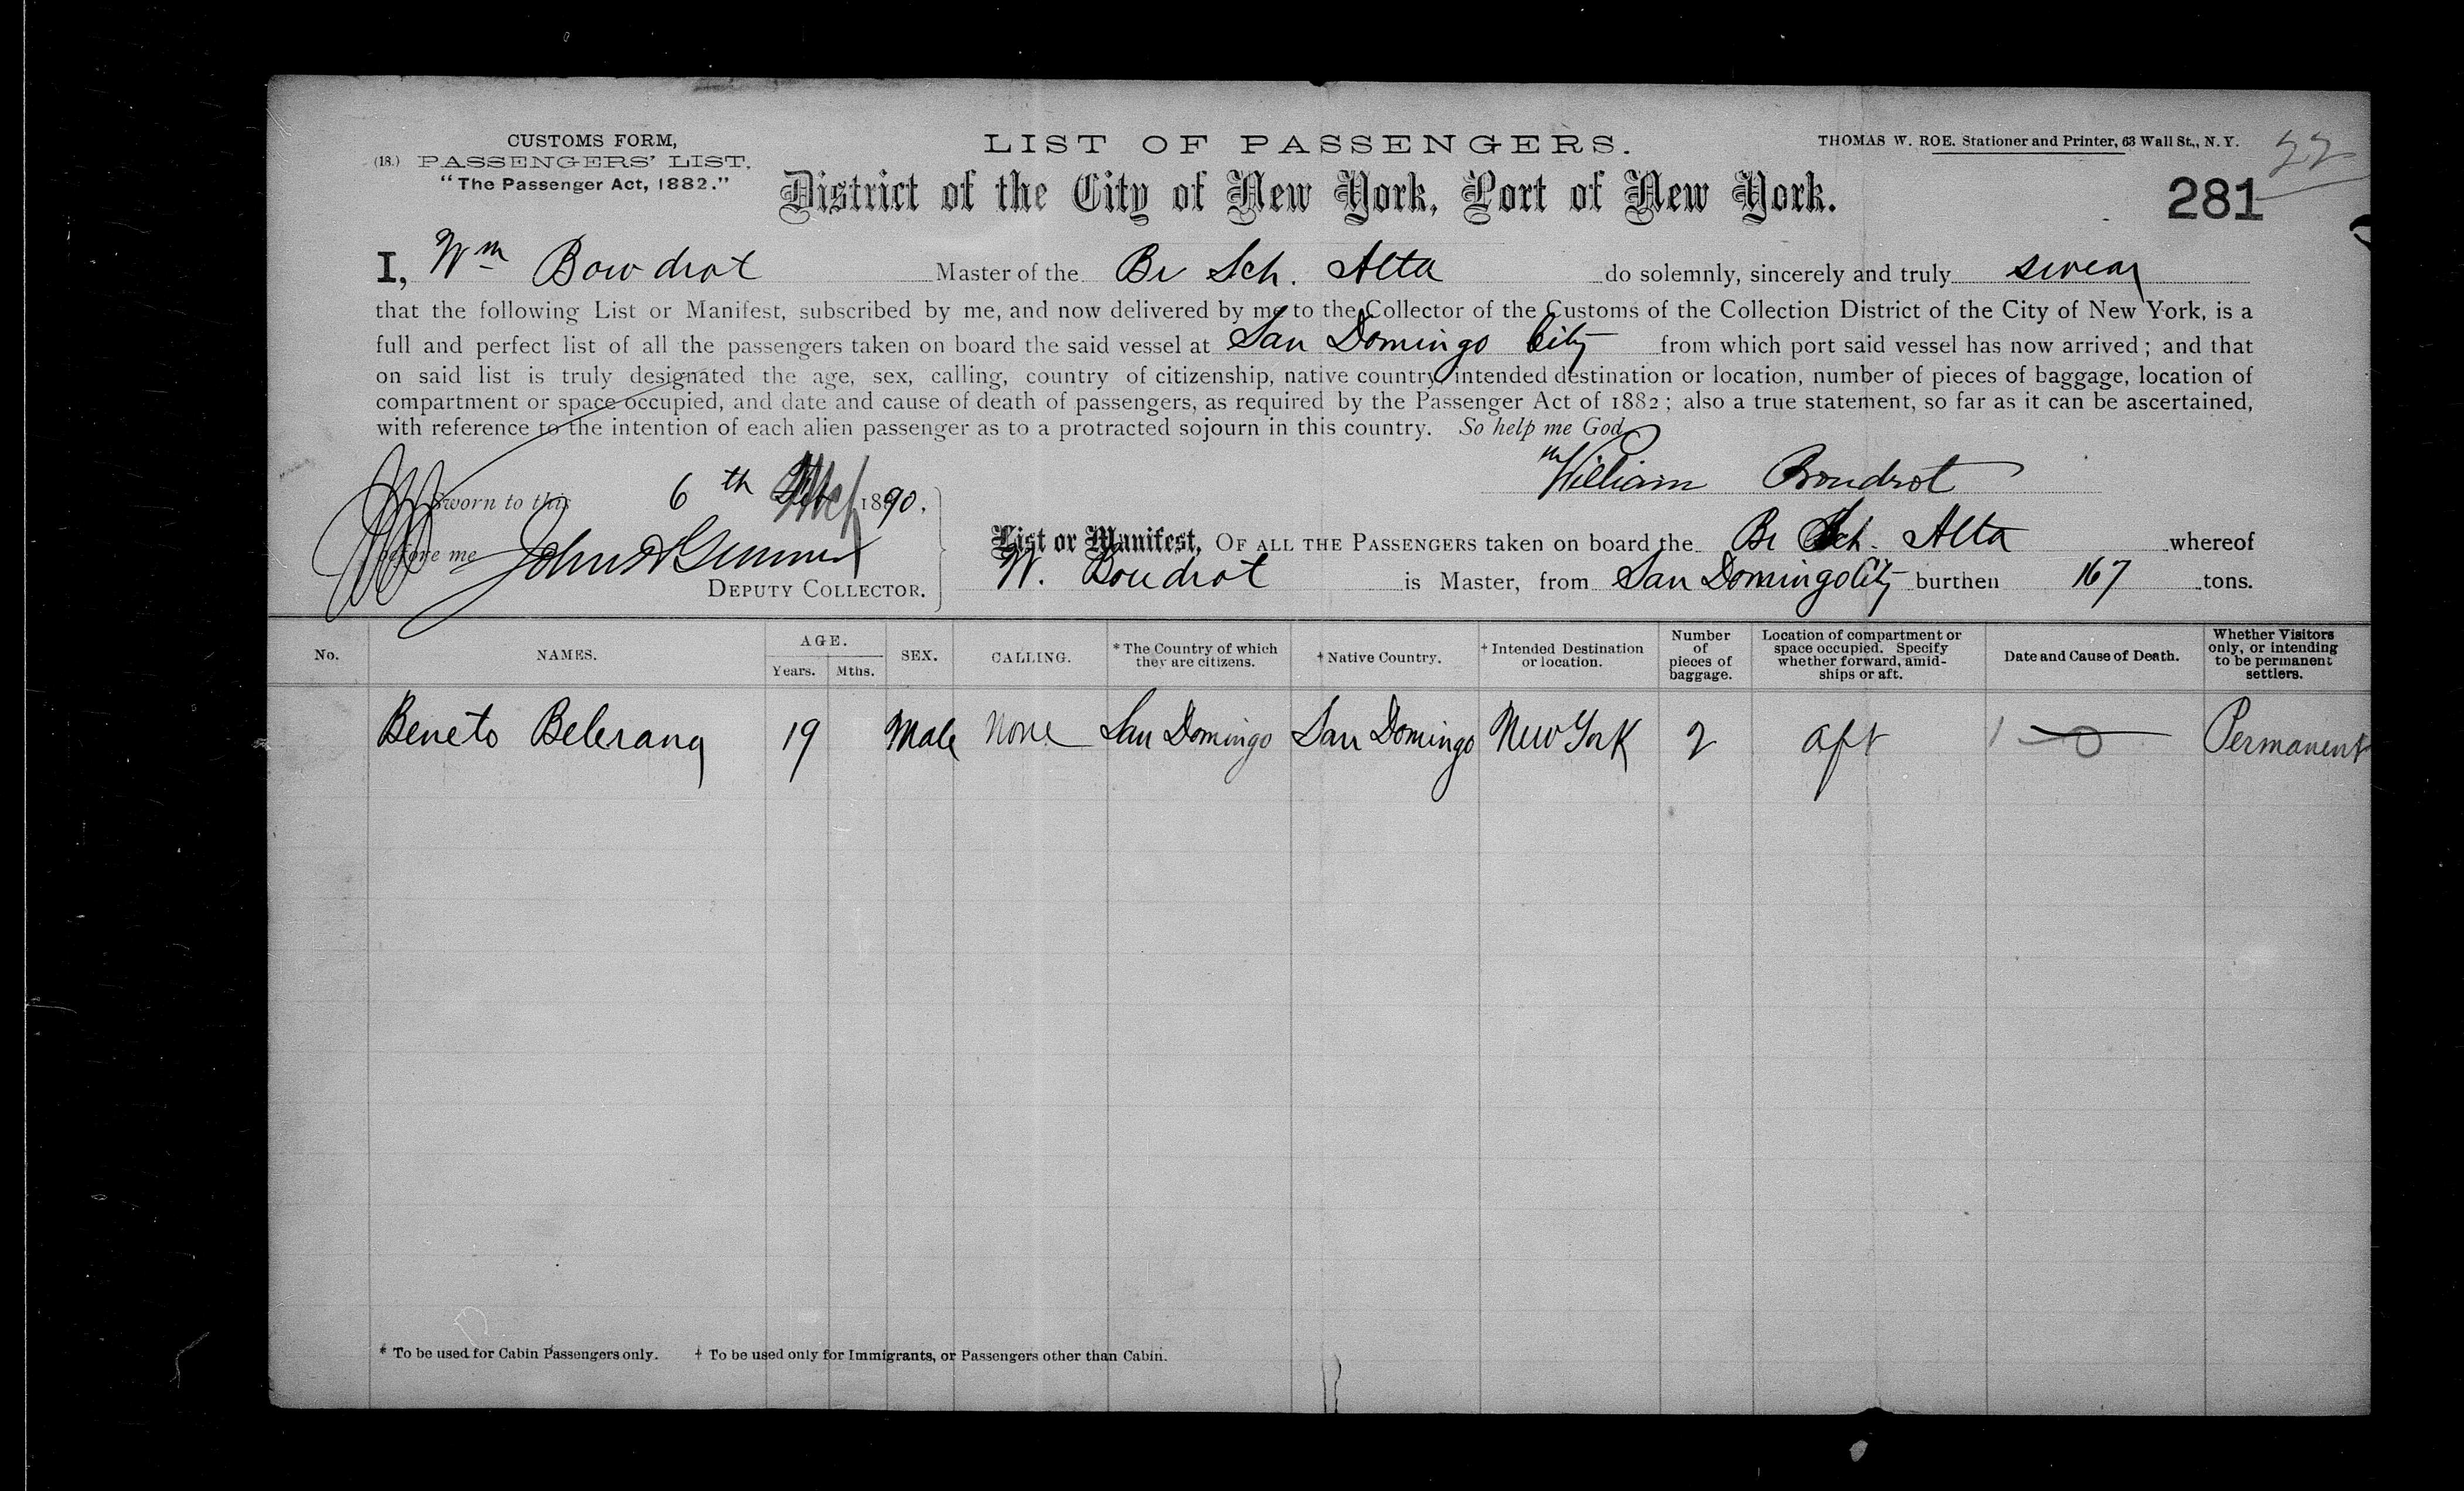 CUSTOMS FORM,
(18.) PASSENGERS' LIST.
"The Passenger Act, 1882."
LIST OF PASSENGERS.
THOMAS W. ROE. Stationer and Printer, 63 Wall St., N. Y.
22
District of the City of New York, Port of New York.
281
I, Wm Bowdrot Master of the Br Sch. Alta do solemnly, sincerely and truly swear
that the following List or Manifest, subscribed by me, and now delivered by me to the Collector of the Customs of the Collection District of the City of New York, is a
full and perfect list of all the passengers taken on board the said vessel at San Domingo City from which port said vessel has now arrived; and that
on said list is truly designated the age, sex, calling, country of citizenship, native country, intended destination or location, number of pieces of baggage, location of
compartment or space occupied, and date and cause of death of passengers, as required by the Passenger Act of 1882; also a true statement, so far as it can be ascertained,
with reference to the intention of each alien passenger as to a protracted sojourn in this country. So help me God.
William Boudrot
Sworn to this 6th Mch 1890,
before me John
DEPUTY COLLECTOR.
List or Manifest, OF ALL THE PASSENGERS taken on board the Br Sch. Alta whereof
W. Boudrot is Master, from San Domingo City burthen 167 tons.
No. NAMES. AGE. Years. Mths. SEX. CALLING. * The Country of which they are citizens. † Native Country. † Intended Destination or location. Number of pieces of baggage. Location of compartment or space occupied. Specify whether forward, amid-ships or aft. Date and Cause of Death. Whether Visitors only, or intending to be permanent settlers.
Beneto 19 Male None San Domingo San Domingo New York 2 aft Permanent
* To be used for Cabin Passengers only. † To be used only for Immigrants, or Passengers other than Cabin.